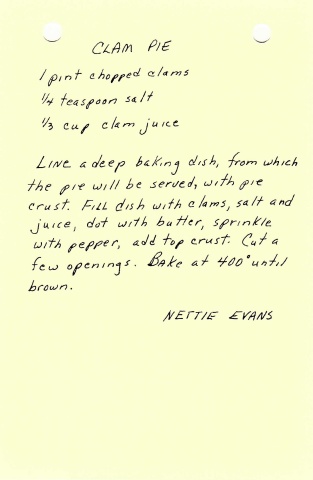 CLAM PIE
1 pint chopped clams
1/4 teaspoon salt
1/3 cup clam juice
LINE a deep baking dish, from which
the pie will be served, with pie
crust. Fill dish with clams, salt and
juice, dot with butter, sprinkle
with pepper, add top crust. Cut a
few openings. Bake at 400° until
brown.
NETTIE EVANS